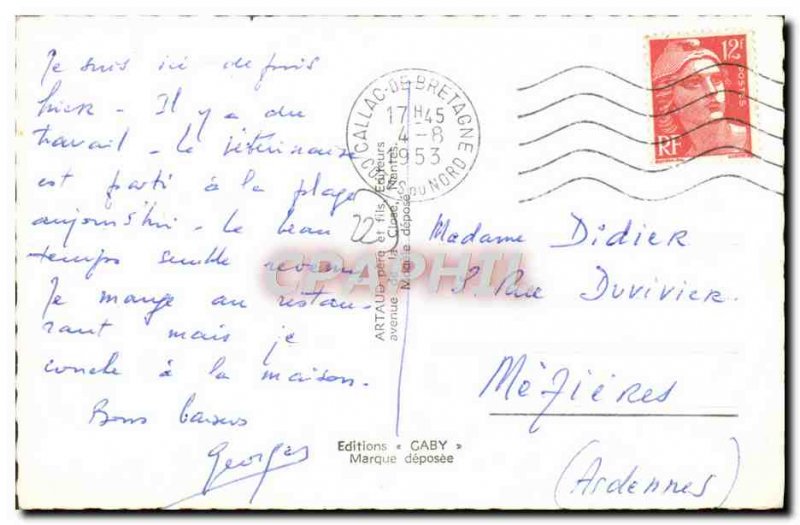 Je suis ici depuis
hier - Il y a du
travail - le vétérinaire
est parti à la plage
aujourd'hui - le beau
temps semble revenu
Je mange au restau-
rant mais je
couche à la maison.
Bons baisers
Georges
CALLAC-DE-BRETAGNE
17H45
4-8
1953
COTES DU NORD
12F
POSTES
RF
22
ARTAUD père et fils, Éditeurs
avenue de la Close, Nantes.
Marque déposée
Madame Didier
8. Rue Duvivier.
Mézières
(Ardennes)
Editions « GABY »
Marque déposée
CPAPHIL